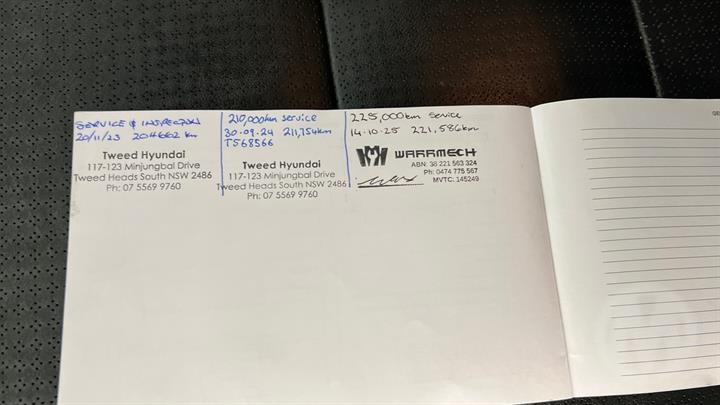 SERVICE & INSPECTION
20/11/23 204662 km
Tweed Hyundai
117-123 Minjungbal Drive
Tweed Heads South NSW 2486
Ph: 07 5569 9760
210,000km service
30-09-24 211,754km
T568566
Tweed Hyundai
117-123 Minjungbal Drive
Tweed Heads South NSW 2486
Ph: 07 5569 9760
225,000km service
14-10-25 221,586km
WARRMECH
ABN: 38 221 563 324
Ph: 0474 775 567
MVTC: 145249